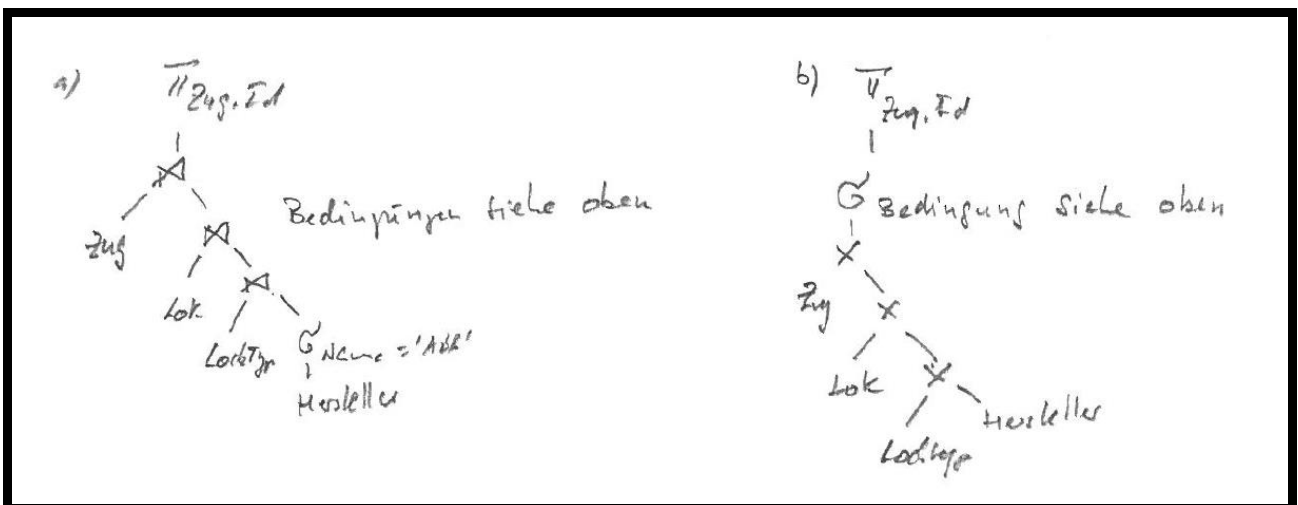 a)
π Zug.Id
⋈
Zug
⋈
Bedingungen siehe oben
Lok
⋈
LockTyp
σ Name = 'ABB'
Hersteller
b)
π Zug.Id
σ Bedingung siehe oben
×
Zug
×
Lok
×
Locktyp
Hersteller